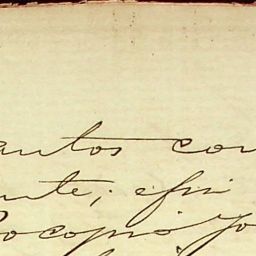 antos con
ente; e fui
ocopio Jo